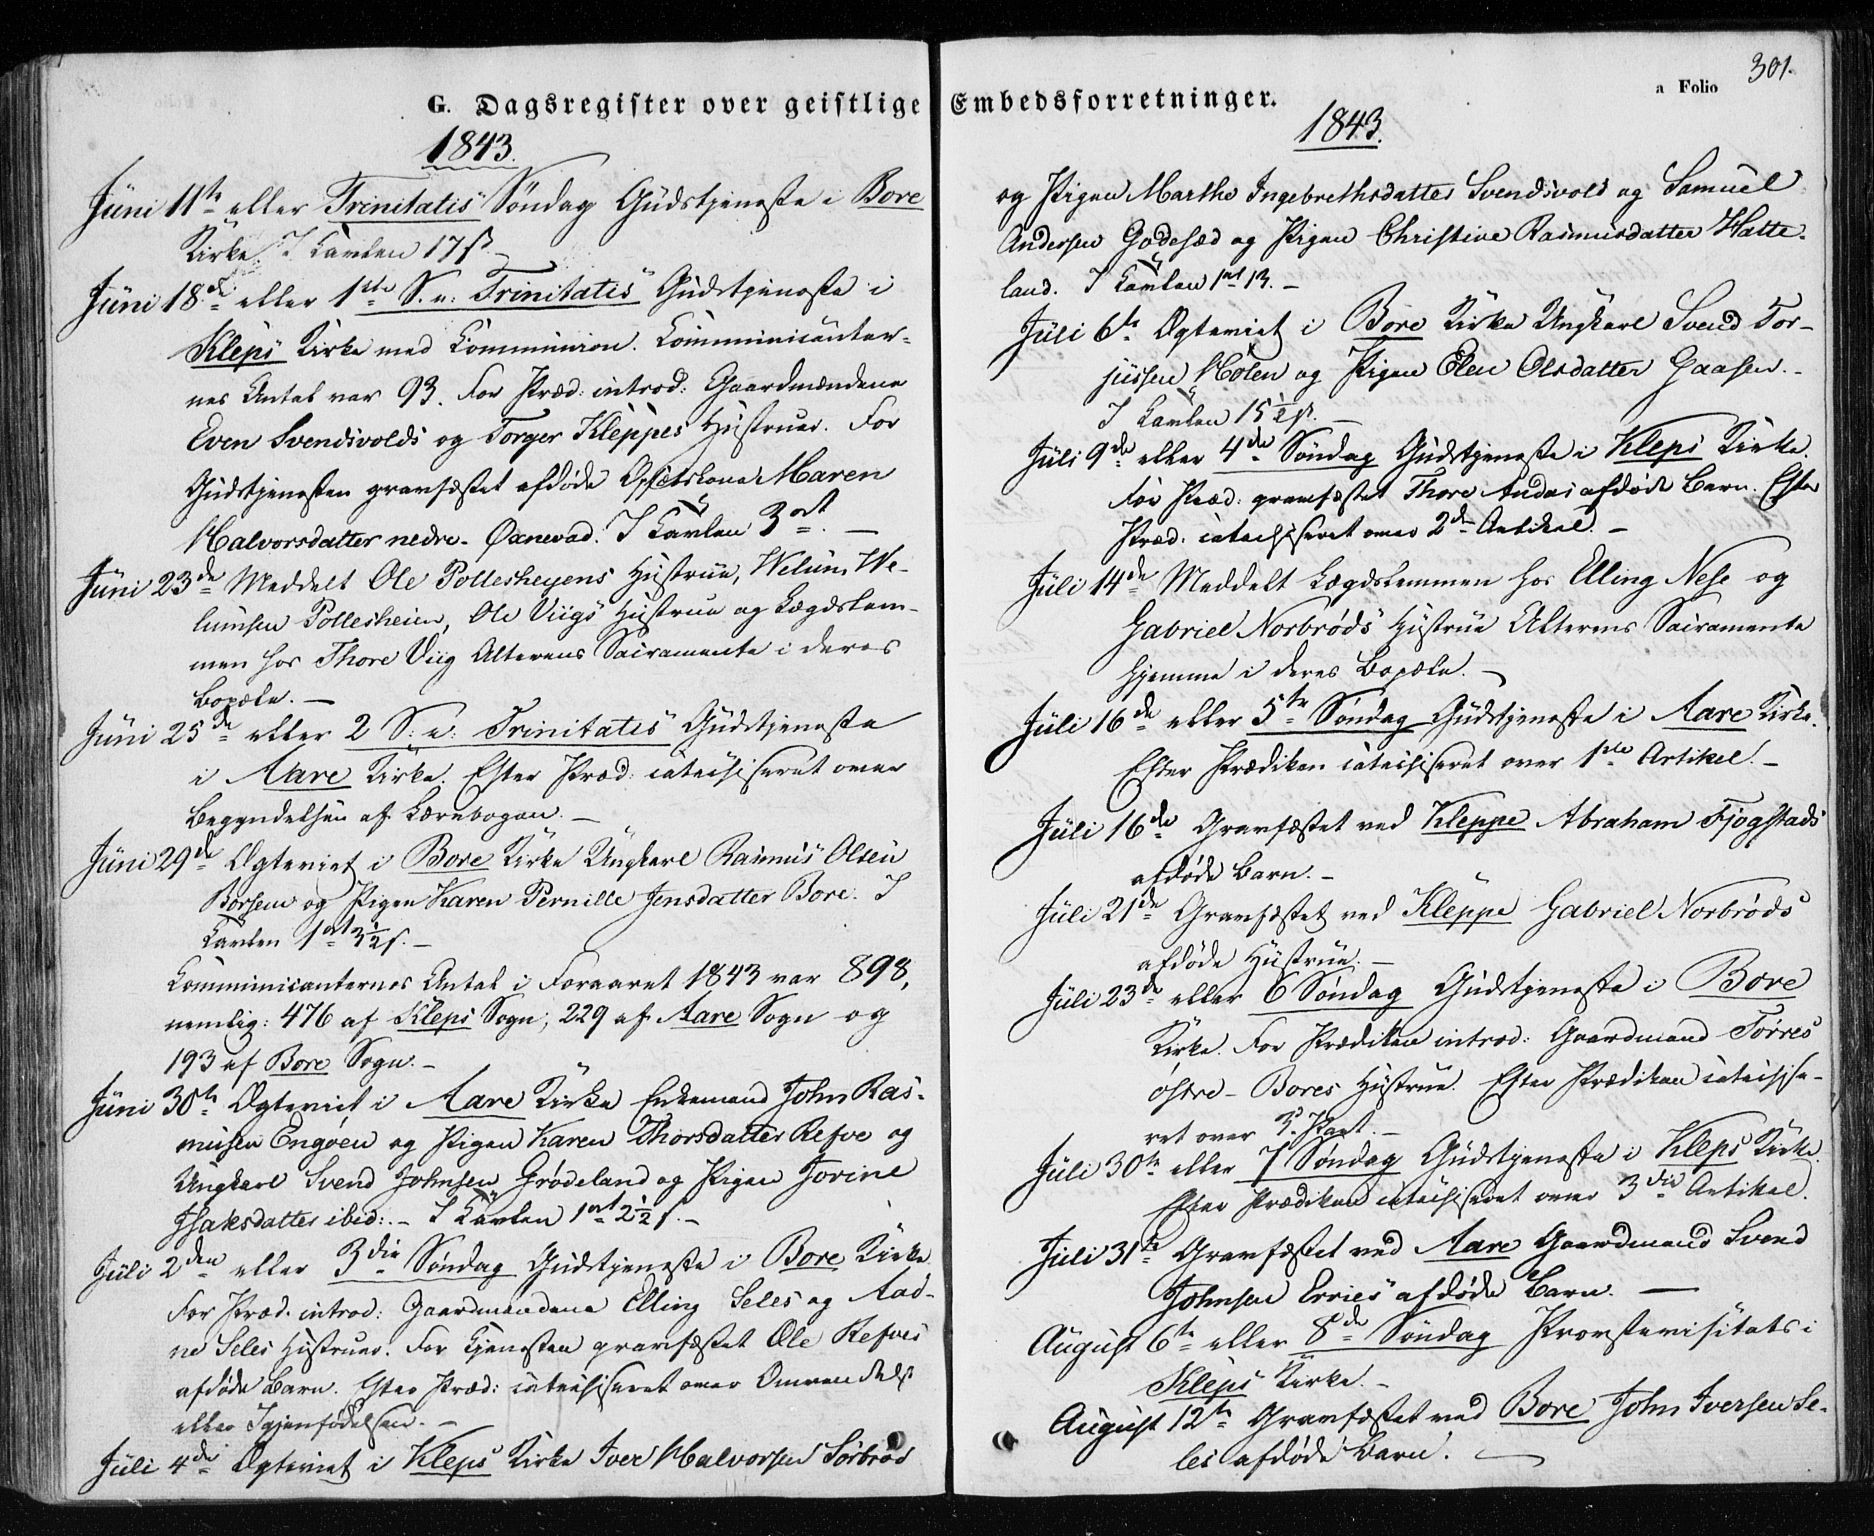 G. Dagsregister over geistlige Embedsforretninger.
a Folio
301.
1843.
Juni 11te eller Trinitatis Søndag Gudstjeneste i Bore
Kirke. I Tavlen 17 s.
Juni 18de eller 1ste S. e. Trinitatis Gudstjeneste i
Kleps Kirke med Communion. Communicanter-
nes Antal var 93. For Præd: introd: Gaardmændene
Even Svendsvolds og Torger Kleppes Hustruer. For
Gudstjenesten gravfæstet afdøde Maren
Halvorsdatter nedre-Øxnevad. I Tavlen 3 ort. —
Juni 23de Meddelt Ole Pollesheyens Hustrue, Welum We-
lumsen Pollesheien, Ole Viigs Hustrue og Lægdslem-
men hos Thore Viig Alterens Sacramente i deres
Bopæle. —
Juni 25de eller 2 S. e. Trinitatis Gudstjeneste
i Aare Kirke. Efter Præd: catechiseret over
Begyndelsen af Lærebogen. —
Juni 29de Ægteviet i Bore Kirke Ungkarl Rasmus Olsen
Borsem og Pigen Karen Pernille Jensdatter Bore. I
Tavlen 1 ort 3½ s. —
Communicanternes Antal i Foraaret 1843 var 898,
nemlig: 476 af Kleps Sogn, 229 af Aare Sogn og
193 af Bore Sogn. —
Juni 30te Ægteviet i Aare Kirke Enkemand John Ras-
mussen Engøen og Pigen Karen Thorsdatter Refve og
Ungkarl Svend Johnsen Grødeland og Pigen Jorine
Isaksdatter ibid: — I Tavlen 1 ort 2½ s. —
Juli 2den eller 3die Søndag Gudstjeneste i Bore Kirke
For Præd. introd: Gaardmændene Elling Seles og Aad-
ne Seles Hustruer. For Tjenesten gravfæstet Ole Refves
afdøde Barn. Efter Præd: catechiseret over Omvendelse
eller Igjenfødelsen. —
Juli 4de Ægteviet i Kleps Kirke Iver Halvorsen Sørbrød
1843.
og Pigen Marthe Ingebrethsdatter Svendsvold og Samuel
Andersen Godesæd og Pigen Christine Rasmusdatter Hatte-
land. I Tavlen 1 ort 13. —
Juli 6te Ægteviet i Bore Kirke Ungkarl Svend Tor-
jussen Holen og Pigen Elen Olsdatter Gaasen. —
I Tavlen 15½ s. —
Juli 9de eller 4de Søndag Gudstjeneste i Kleps Kirke.
For Præd: gravfæstet Thore Andas afdøde Barn. Efter
Præd: catechiseret over 2den Artikel. —
Juli 14de Meddelt Lægdslemmen hos Elling Nese og
Gabriel Norbrøds Hustrue Alterens Sacramente
hjemme i deres Bopæle. —
Juli 16de eller 5te Søndag Gudstjeneste i Aare Kirke.
Efter Prædiken catechiseret over 1ste Artikel. —
Juli 16de Gravfæstet ved Kleppe Abraham Fjogstads
afdøde Barn. —
Juli 21de Gravfæstet ved Kleppe Gabriel Norbrøds
afdøde Hustrue. —
Juli 23de eller 6 Søndag Gudstjeneste i Bore
Kirke. For Prædiken introd: Gaardmand Tørres
østre-Bores Hustrue. Efter Prædiken catechise-
ret over 3. Part. —
Juli 30te eller 7 Søndag Gudstjeneste i Kleps Kirke.
Efter Prædiken catechiseret over 3die Artikel.
Juli 31te Gravfæstet ved Aare Gaardmand Svend
Johnsen Erries afdøde Barn. —
August 6te eller 8de Søndag Provstevisitats i
Kleps Kirke. —
August 12te Gravfæstet ved Bore John Iversen Se-
les afdøde Barn. —